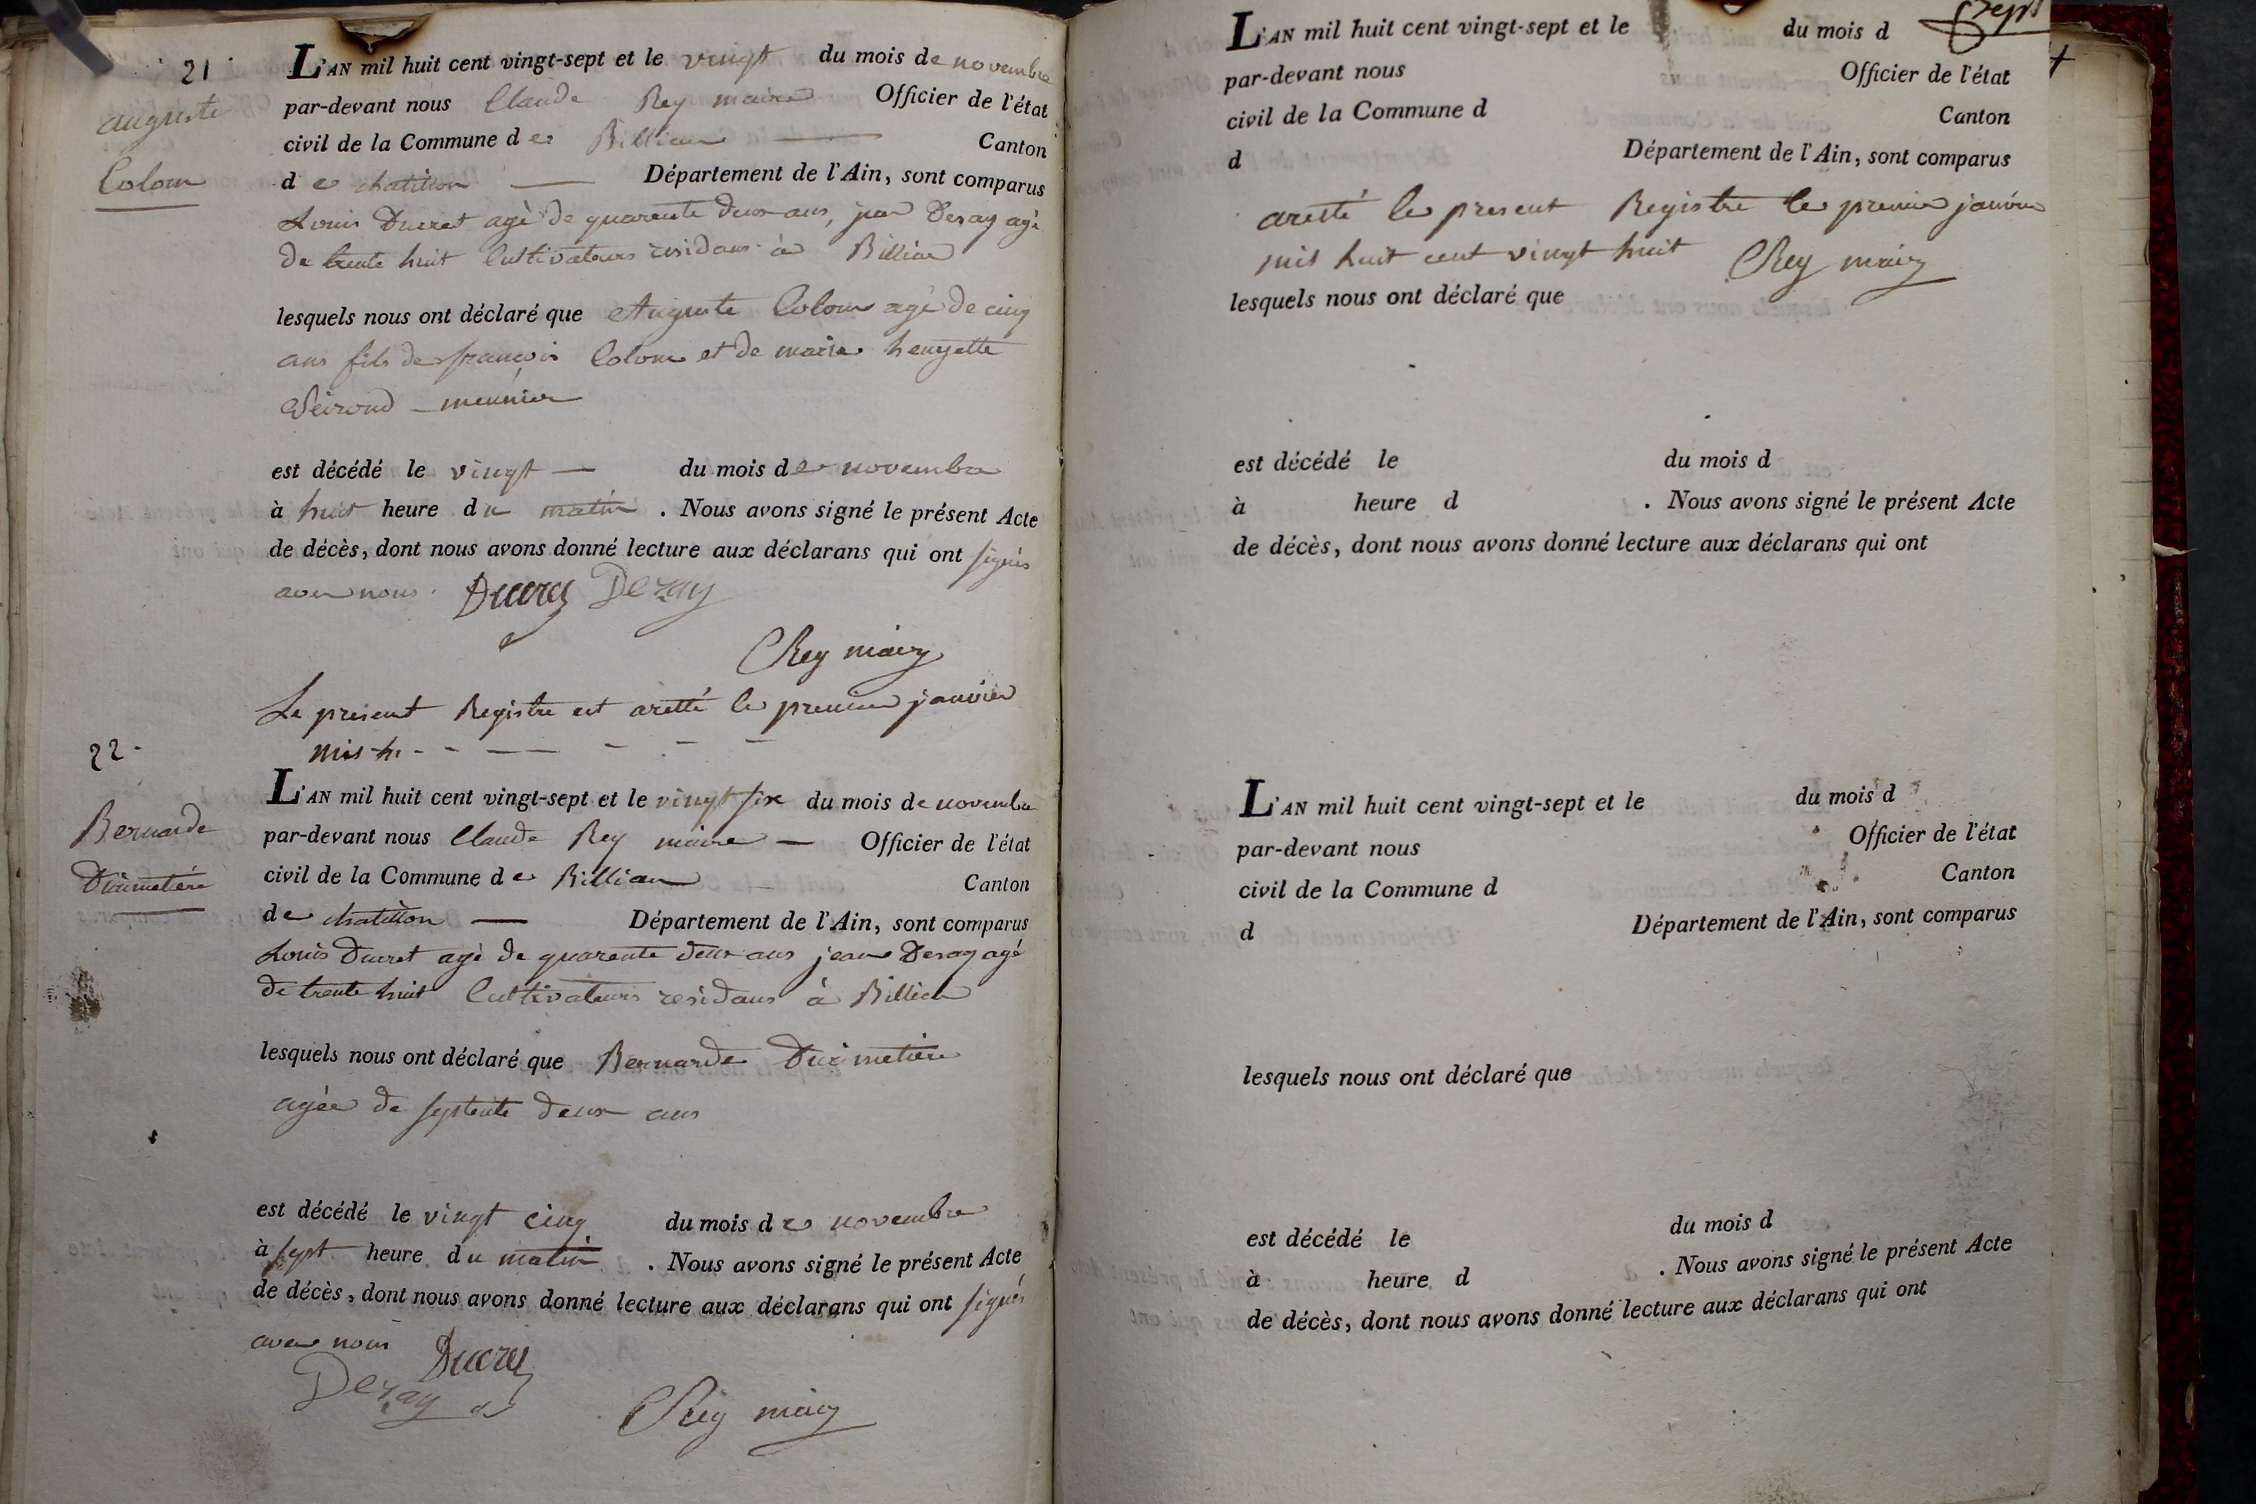 21
auguste
Colom
L'AN mil huit cent vingt-sept et le vingt du mois de novembre
par-devant nous Claude Rey maire Officier de l'état
civil de la Commune de Billiau Canton
de chatillon Département de l'Ain, sont comparus
Louis Ducret agé de quarente deux ans, jean Dezay agé
de trente huit Cultivateurs residans à Billiau
lesquels nous ont déclaré que Auguste Colom agé de cinq
ans fils de françois Colom et de marie henryette
meunier
est décédé le vingt du mois de novembre
à huit heure du matin . Nous avons signé le présent Acte
de décès, dont nous avons donné lecture aux déclarans qui ont signés
avec nous. Ducret Dezay
Rey maire
Le present Registre est aretté le premier janvier
mil h.
22
Bernarde
Duimetière
L'AN mil huit cent vingt-sept et le vingt six du mois de novembre
par-devant nous Claude Rey maire Officier de l'état
civil de la Commune de Billiau Canton
de chatillon Département de l'Ain, sont comparus
Louis Ducret agé de quarente deux ans jean Dezay agé
de trente huit Cultivateurs residans à Billiau
lesquels nous ont déclaré que Bernarde Duimetière
agée de septente deux ans
est décédé le vingt cinq du mois de novembre
à sept heure du matin . Nous avons signé le présent Acte
de décès, dont nous avons donné lecture aux déclarans qui ont signés
avec nous Ducret
Dezay
Rey maire
sept
L'AN mil huit cent vingt-sept et le du mois d
par-devant nous Officier de l'état
civil de la Commune d Canton
d Département de l'Ain, sont comparus
aresté le present Registre le premier janvier
mil huit cent vingt huit Rey maire
lesquels nous ont déclaré que
est décédé le du mois d
à heure d . Nous avons signé le présent Acte
de décès, dont nous avons donné lecture aux déclarans qui ont
L'AN mil huit cent vingt-sept et le du mois d
par-devant nous Officier de l'état
civil de la Commune d Canton
d Département de l'Ain, sont comparus
lesquels nous ont déclaré que
est décédé le du mois d
à heure d . Nous avons signé le présent Acte
de décès, dont nous avons donné lecture aux déclarans qui ont